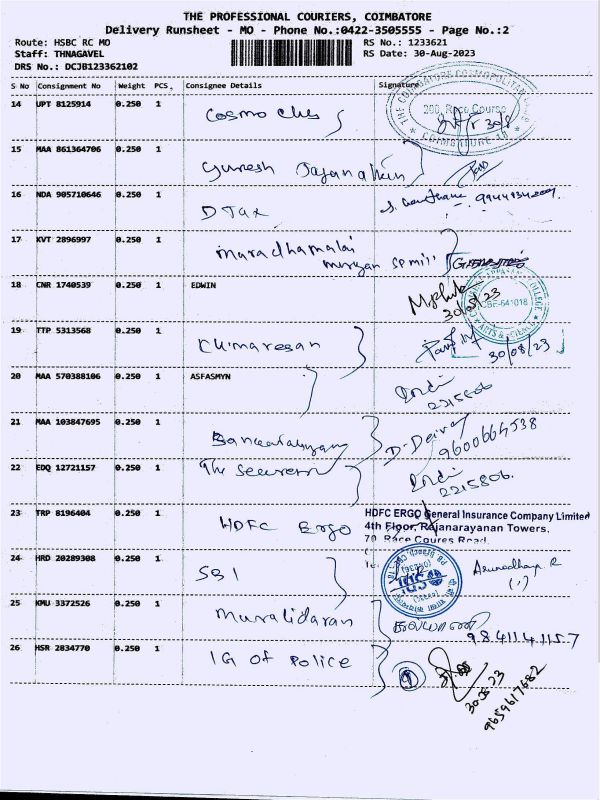 THE PROFESSIONAL COURIERS, COIMBATORE
Delivery Runsheet - MO - Phone No.:0422-3505555 - Page No.:2
Route: HSBC RC MO
RS No.: 1233621
Staff: THNAGAVEL
RS Date: 30-Aug-2023
DRS No.: DCJB123362102
S No Consignment No Weight PCS. Consignee Details Signature
14 UPT 8125914 0.250 1 Cosmo Club
200, Race Course
COIMBATORE-18
15 MAA 861364706 0.250 1
16 NDA 905710646 0.250 1 D Tax
17 KVT 2896997 0.250 1 Maradhamalai
murgan sp mill
18 CNR 1740539 0.250 1 EDWIN
30/08/23
CBE-641018
ARTS & SCIENCE
COLLEGE
19 TTP 5313568 0.250 1 Kumaresan
30/08/23
20 MAA 570388106 0.250 1 ASFASMYN
2215806
21 MAA 103847695 0.250 1
9600664538
22 EDQ 12721157 0.250 1
2215806.
23 TRP 8196404 0.250 1 HDFC Ergo
HDFC ERGO General Insurance Company Limited
4th Floor, Rajanarayanan Towers.
70 Race Coures Road.
24 HRD 20289308 0.250 1 SBI
25 KMU 3372526 0.250 1 Muralidaran
9841141157
26 HSR 2834770 0.250 1 IG OF POLICE
9659617682